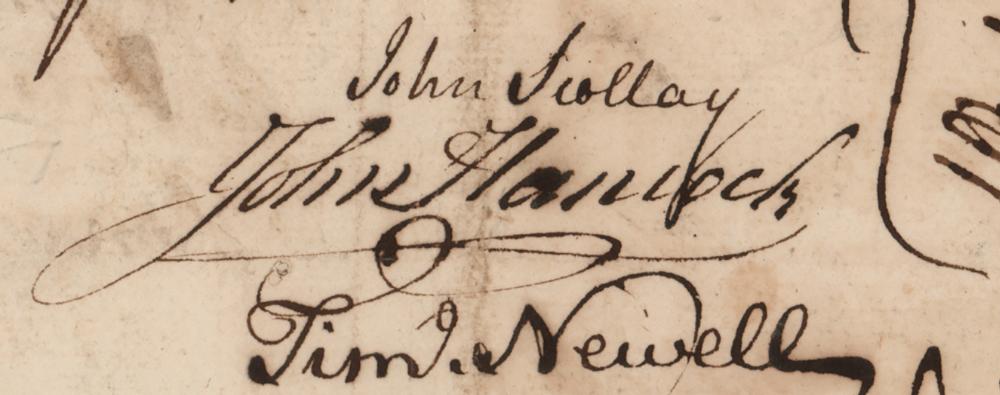 John Scollay
John Hancock
Timᵒ. Newell